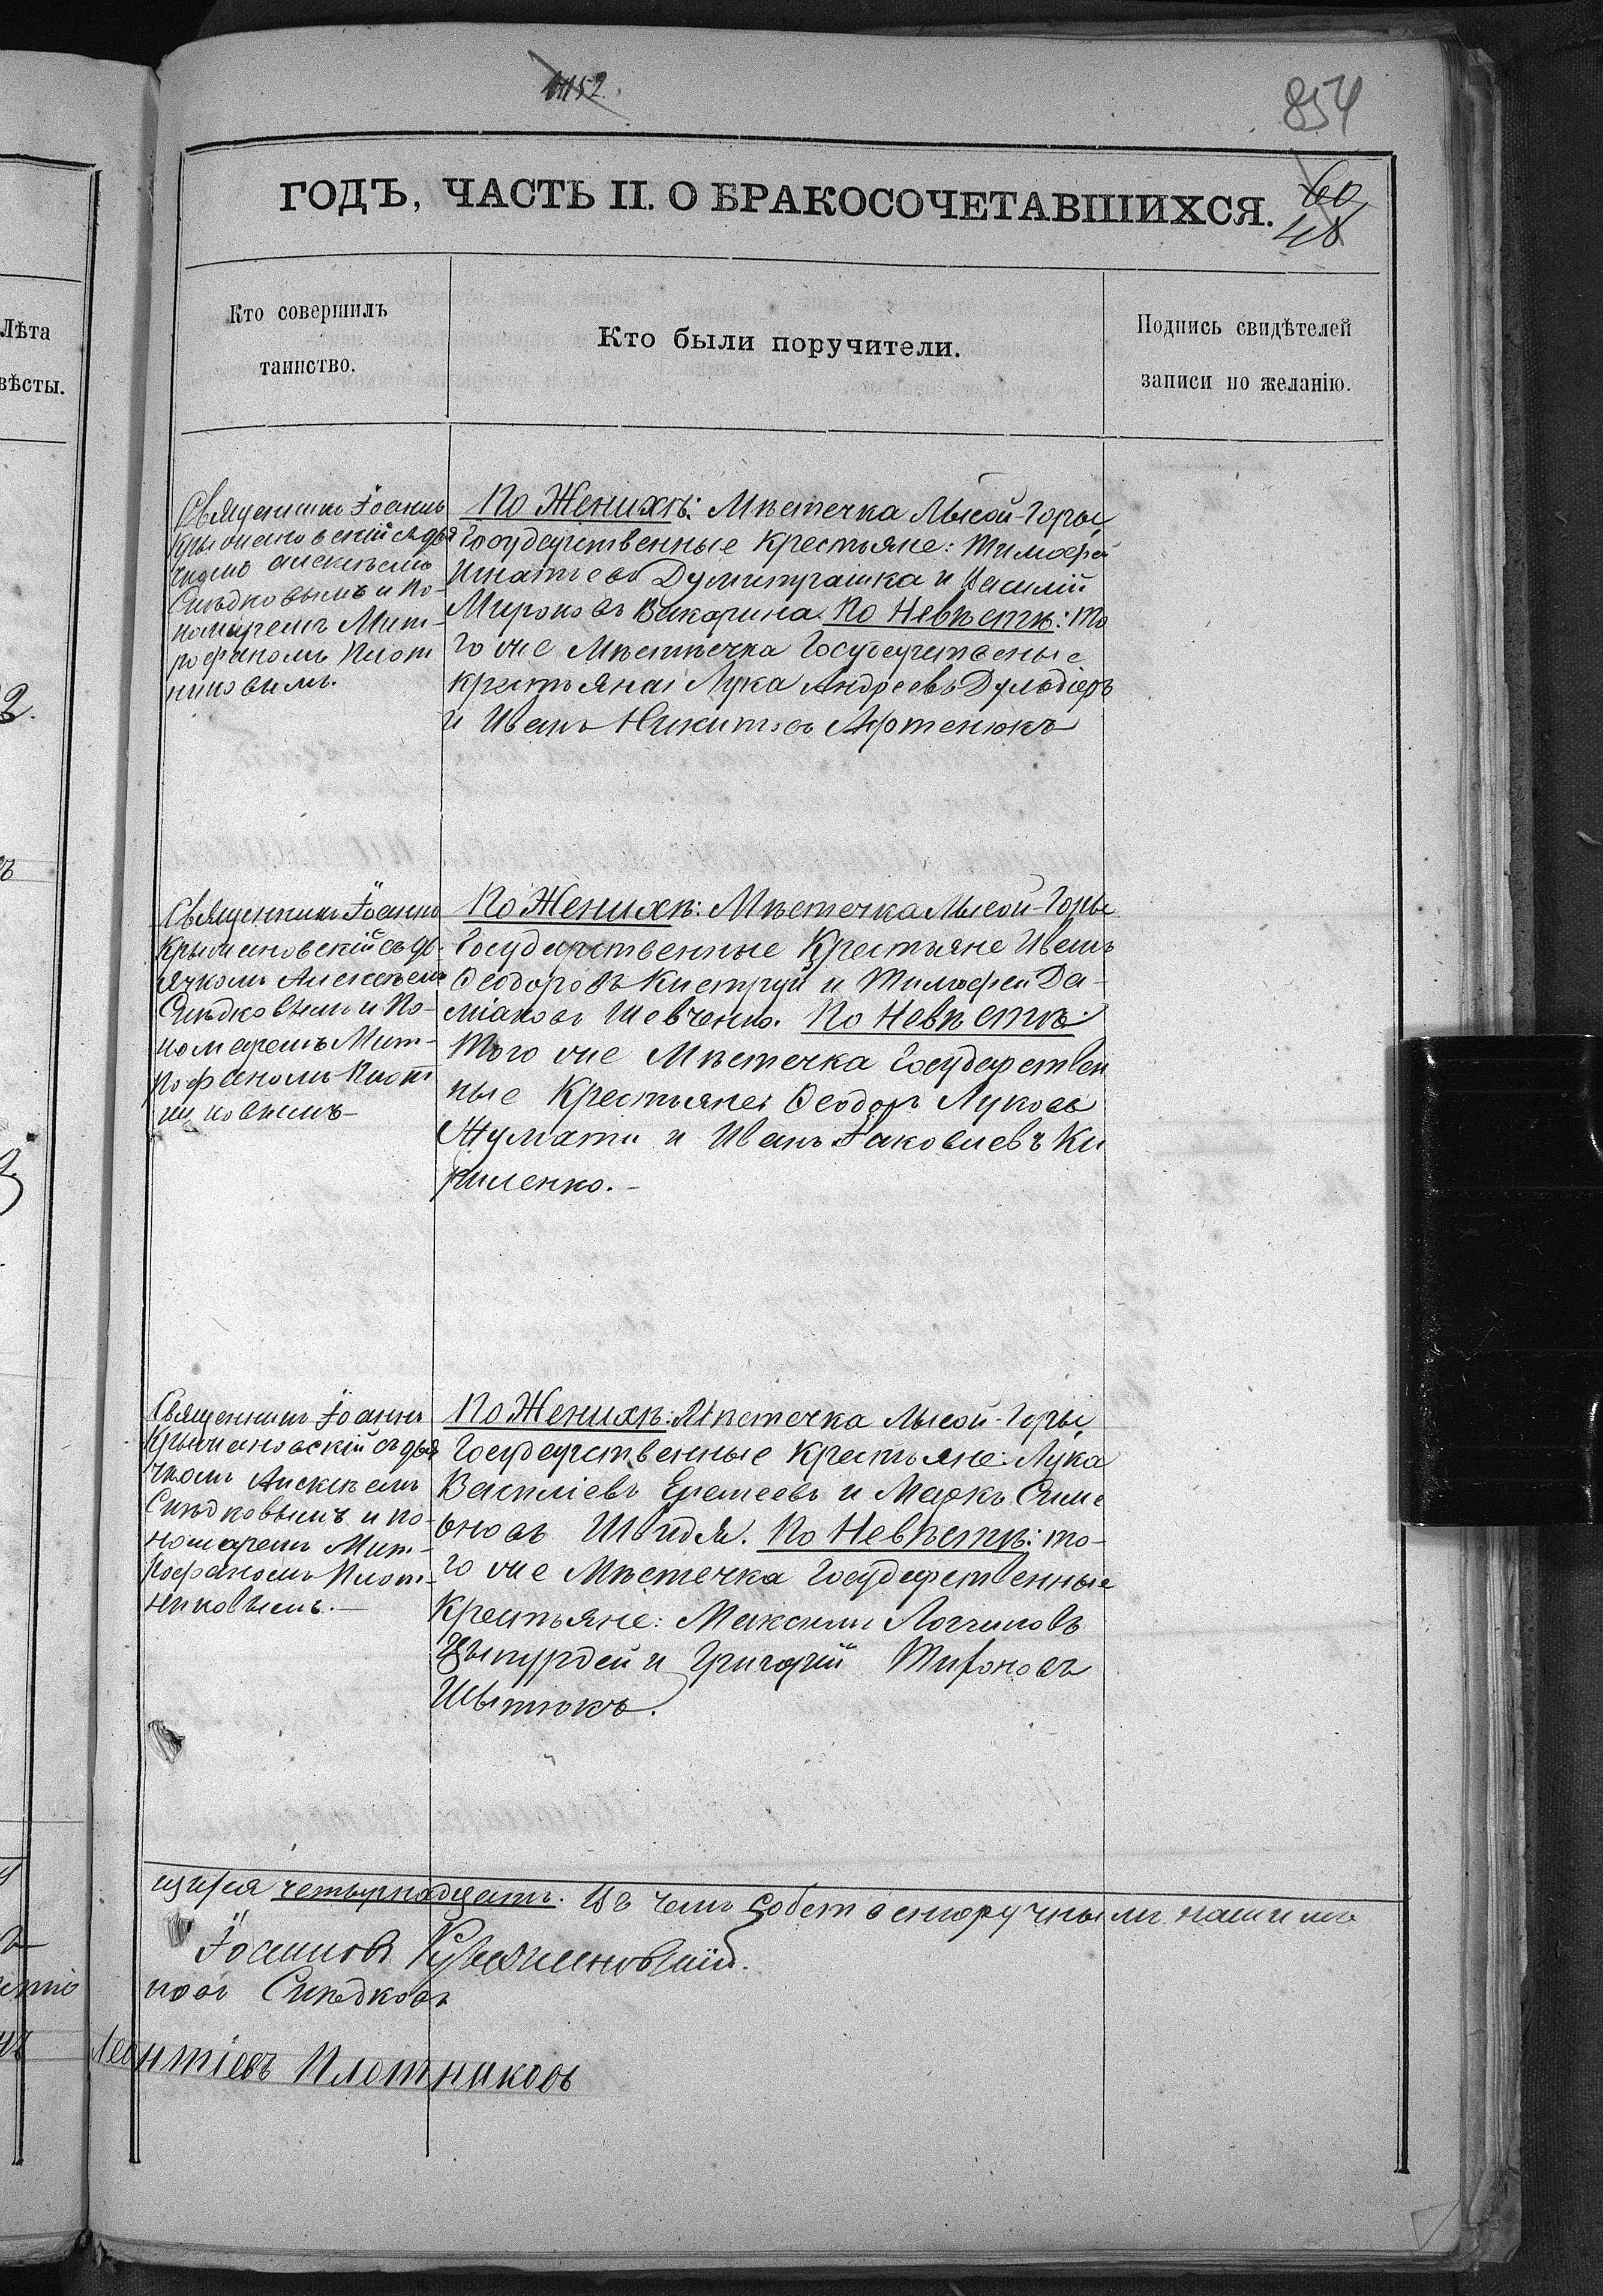 1152.
854
ГОДЪ, ЧАСТЬ II. О БРАКОСОЧЕТАВШИХСЯ.
60
48
Лѣта
вѣсты.
Кто совершилъ
таинство.
Кто были поручители.
Подпись свидѣтелей
записи по желанію.
Священникъ Іоаннъ
Крыжановскій съ дья
чкомъ Алексѣемъ
Слѣдковымъ и По-
номаремъ Мит-
рофаномъ Плот
никовымъ.
По Женихѣ: Мѣстечка Лысой-Горы,
Государственные Крестьяне: Тимофей
Игнатьевъ Думитрашка и Василій
Мироновъ Викарина. По Невѣстѣ: То
го же Мѣстечка Государственые
крестьяна: Лука Андреевъ Дульдіеръ
и Иванъ Никитовъ Артенюкъ
Священникъ Іоаннъ
Крыжановскій съ дь-
ячкомъ Алексѣемъ
Слѣдковымъ и По-
номаремъ Мит-
рофаномъ Плот
никовымъ-
По Женихѣ: Мѣстечка Лысой-Горы
Государственные Крестьяне Иванъ
Ѳеодоровъ Киструй и Тимофей Да-
міановъ Шевченко. По Невѣстѣ:
Того же Мѣстечка Государствен
ные Крестьяне: Ѳеодоръ Луковъ
Жумати и Иванъ Іаковлевъ Ки
риленко.-
Священникъ Іоаннъ
Крыжановскій съ дья
чкомъ Алексѣемъ
Слѣдковымъ и по-
номаремъ Мит-
рофаномъ Плот-
никовымъ.-
По Женихѣ: Мѣстечка Лысой-Горы,
Государственные крестьяне: Лука
Василіевъ Еремеевъ и Маркъ Симе
оновъ Швидя. По Невѣстѣ: то-
го же Мѣстечка Государственные
Крестьяне: Максимъ Логгиновъ
Цыпурдей и Григорій Тифоновъ
Шытюкъ.
щихся четырнадцать. Въ чемъ собственоручнымъ нашимъ
Іоаннъ Крыжановскій.
ковъ Слѣдковъ
Леонтіевъ Плотниковъ